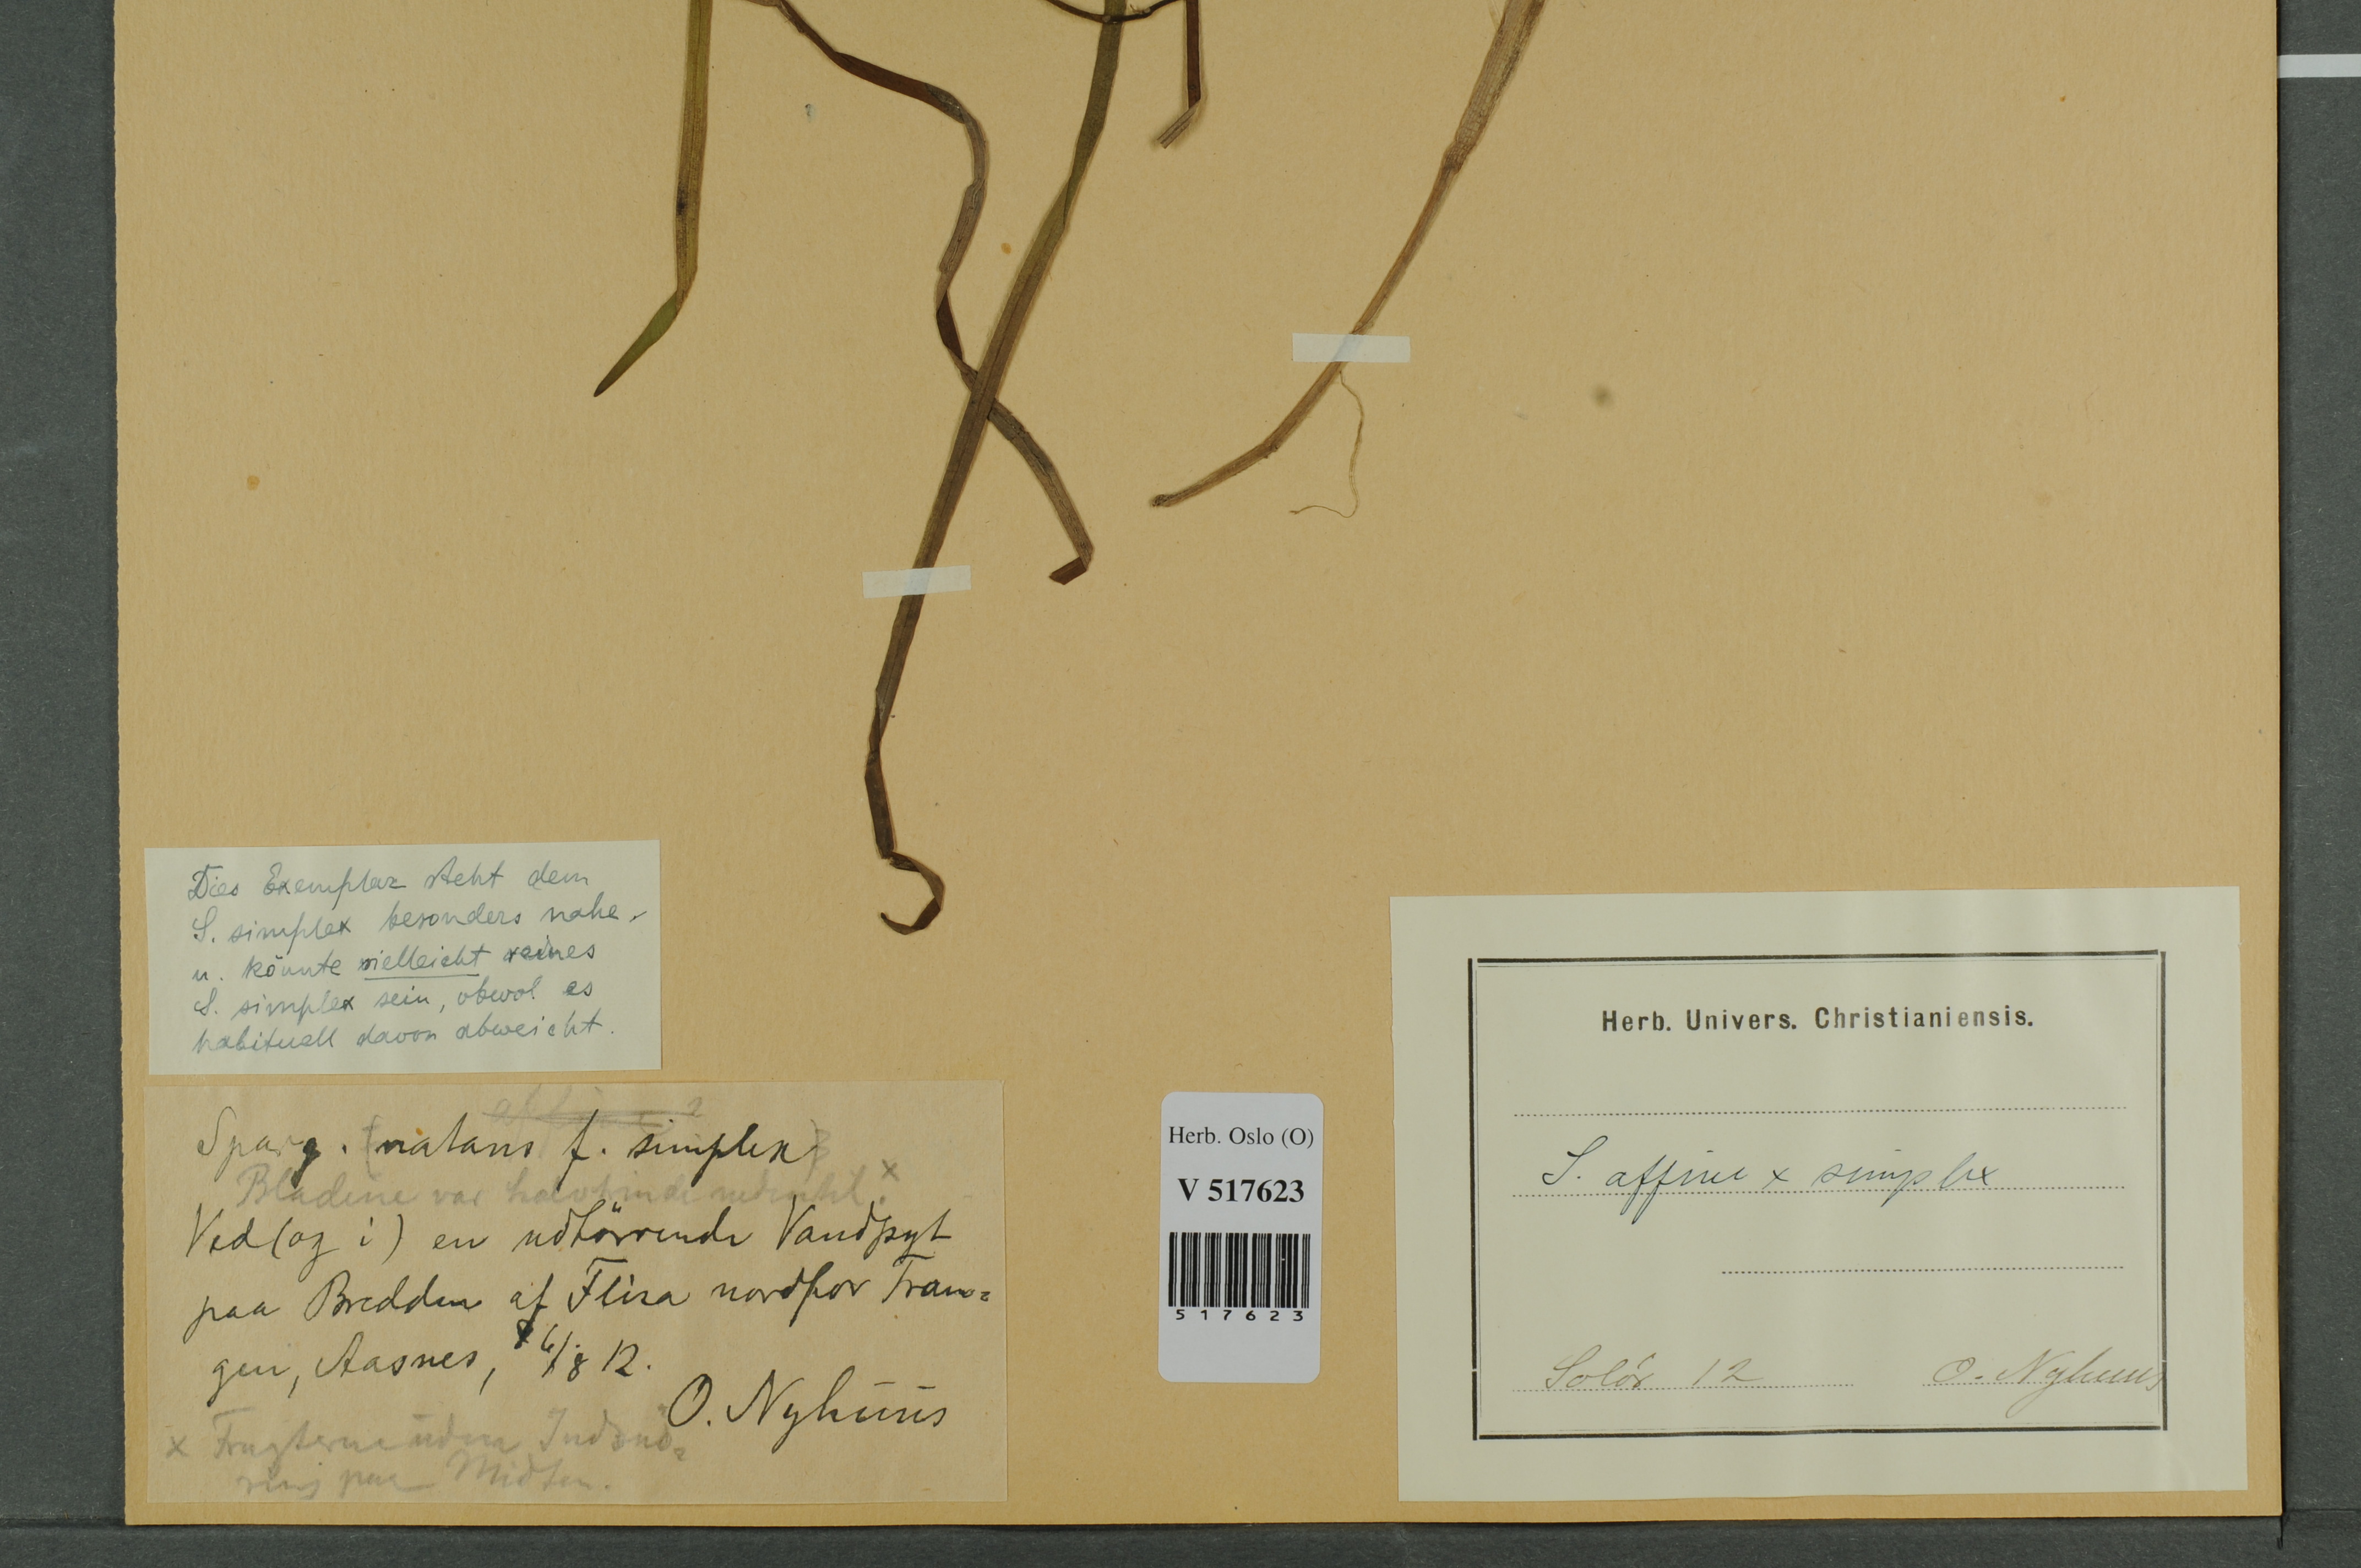 Dies Exemplar steht dem
S. simplex besonders nahe.
u. könnte vielleicht reines
S. simplex sein, obwol es
habituell davon abweicht.
Sparg. (natans f. simplex)
Bladene var
Ved (og i) en udtörrende Vandpyt
paa Bredden af Flisa nordfor Tran=
gen, Aasnes, 6/8 12.
O. Nyhuus
x Frugterne uden Indsnö=
ring paa Midten.
Herb. Oslo (O)
V 517623
517623
Herb. Univers. Christianiensis.
S. affine x simplex
Solör 12 O. Nyhuus